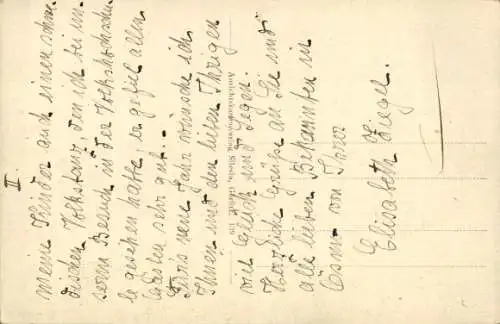 II
meine Kinder auch einen schwe-
dischen Volkstanz den ich bei un-
serm Besuch in der Volkshochschu-
le gesehen hatte, er gefiel allen
Gästen sehr gut. –
Fürs neue Jahr wünsche ich
Ihnen und den lieben Ihrigen
viel Glück und Segen.
Herzliche Grüße an Sie und
alle lieben Bekannten in
von Ihrer
Elisabeth Ziegel.